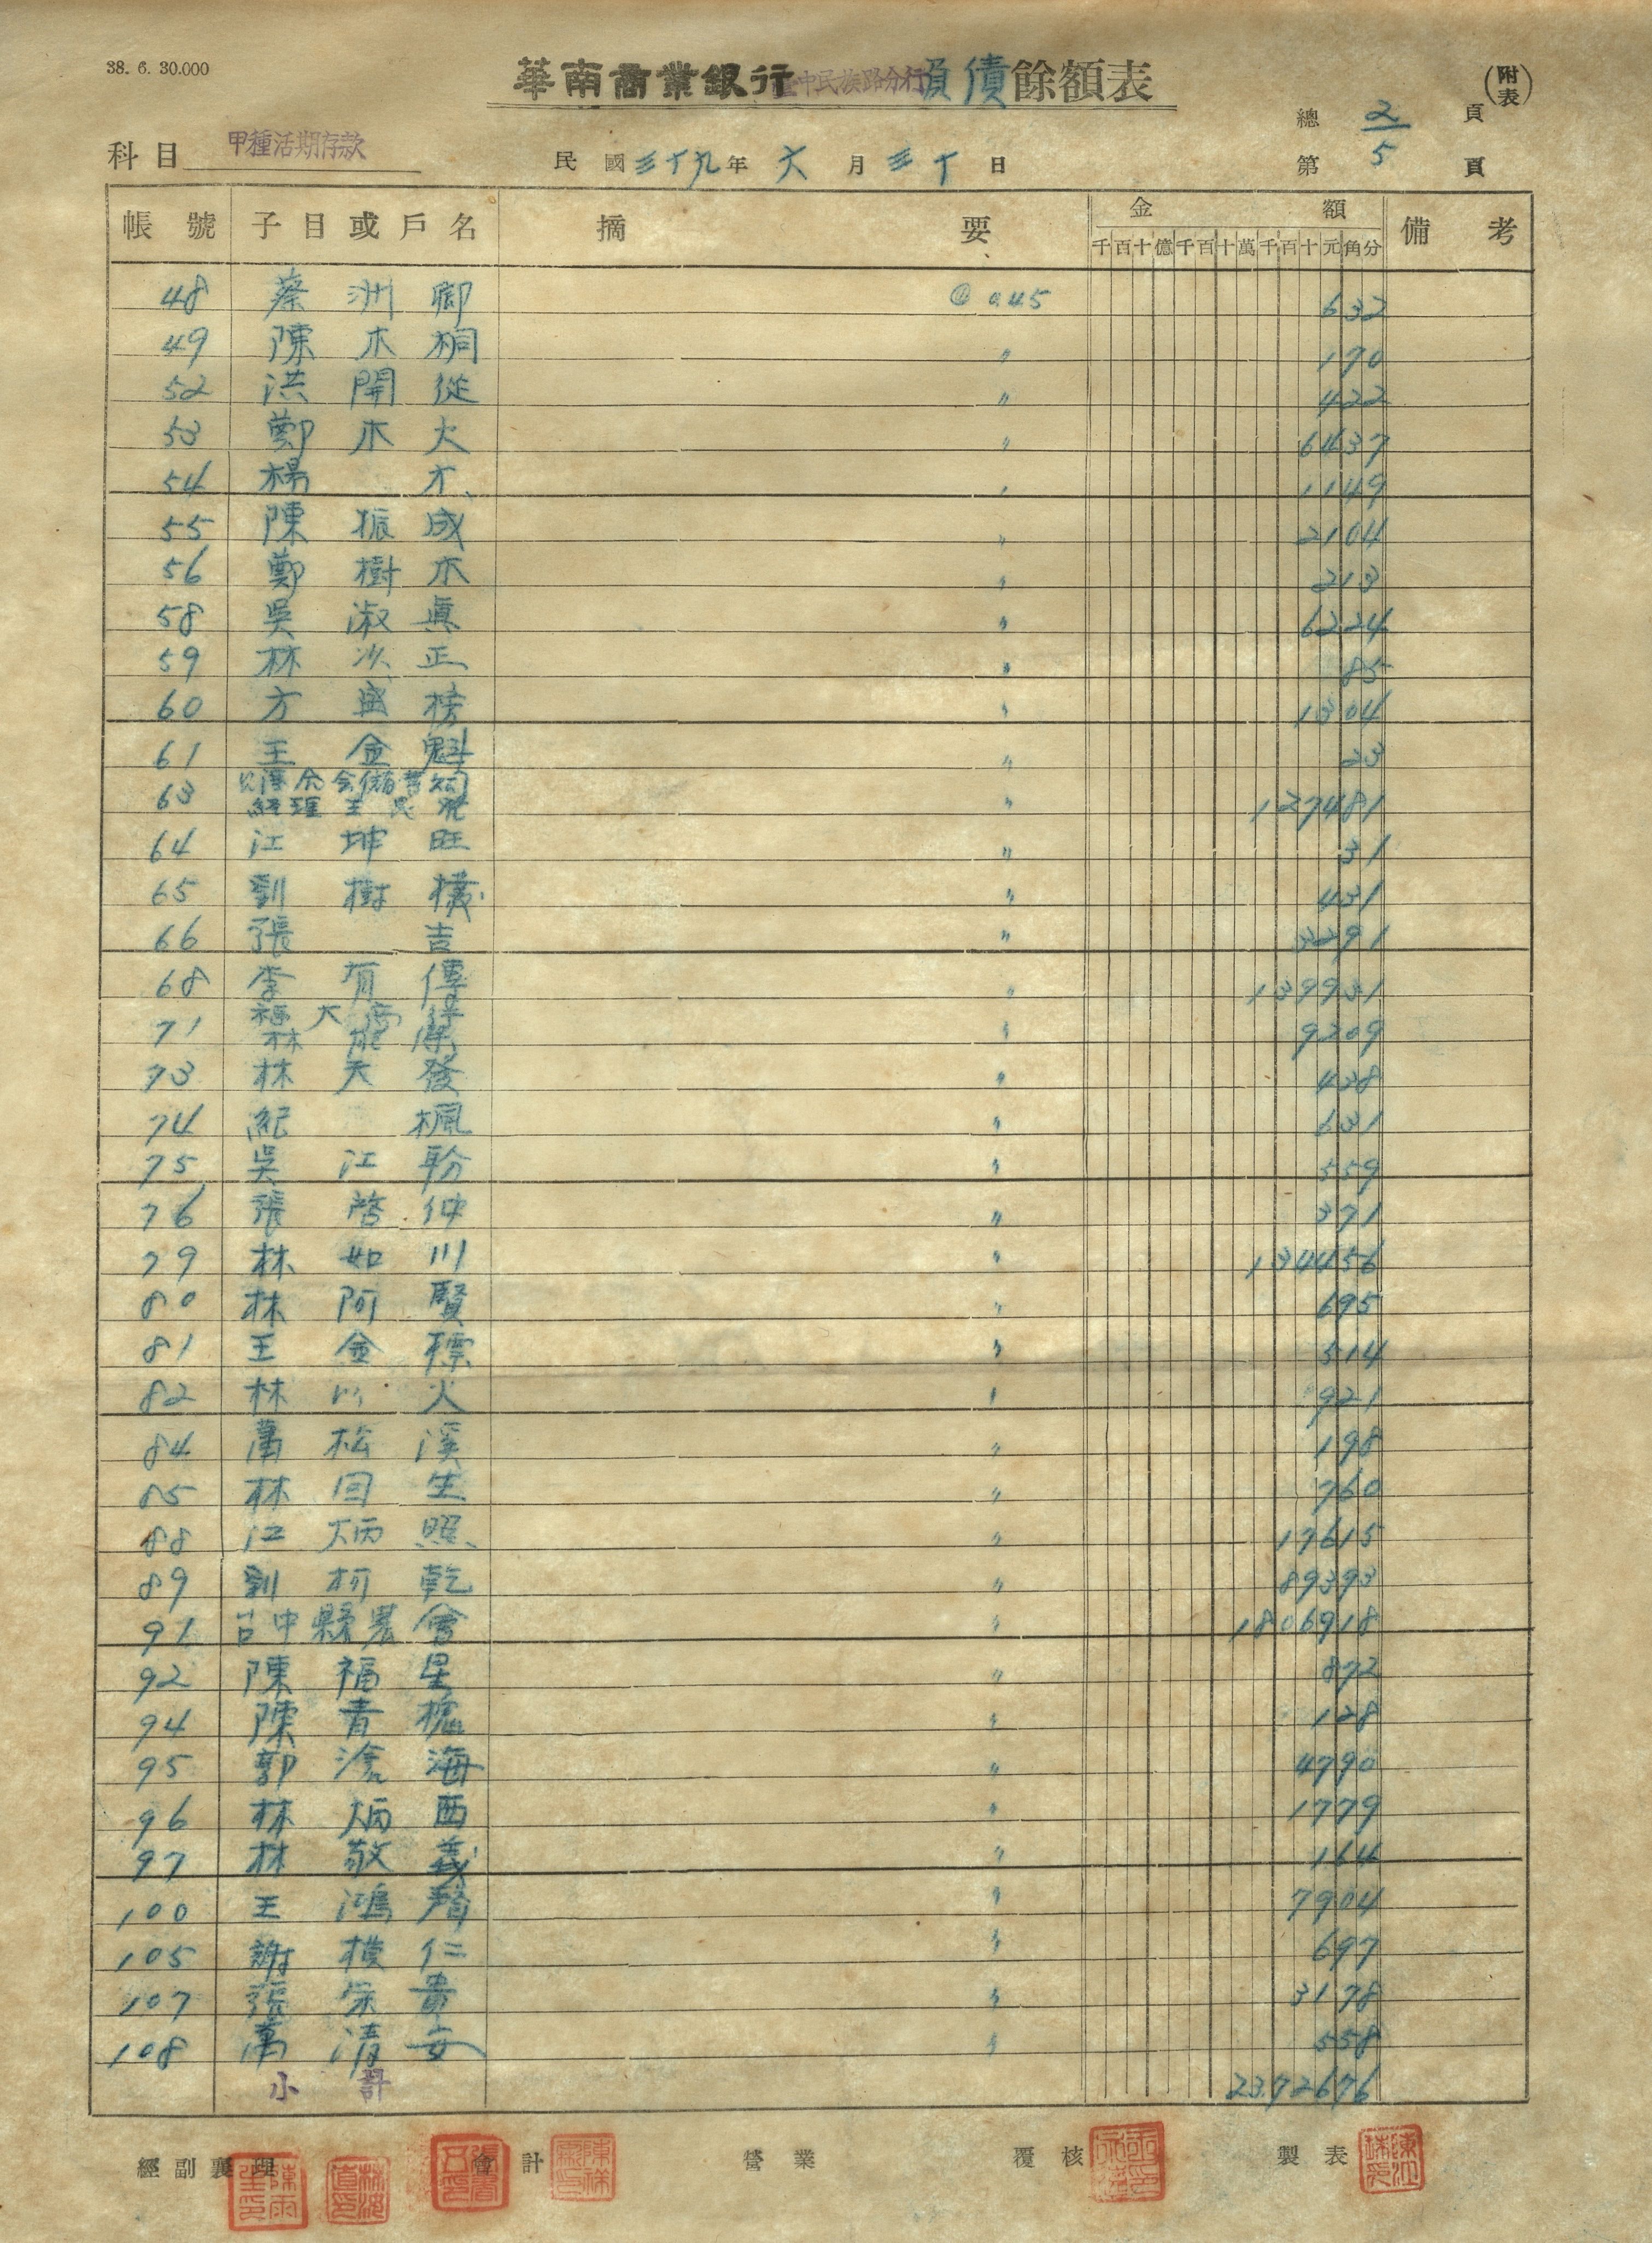 38. 6. 30.000
華南商業銀行臺中民族路分行負債餘額表
(附表)
總 2 頁
科目 甲種活期存款 民國三十九年六月三十日 第 5 頁
帳號 子目或戶名 摘要 金額 備考
千百十億千百十萬千百十元角分
48 蔡洲卿 @0.45 632
49 陳木桐 〃 170
52 洪開從 〃 422
53 鄭木火 〃 6437
54 楊木 〃 1149
55 陳振成 〃 2104
56 鄭樹木 〃 213
58 吳淑真 〃 6224
59 林次正 〃 85
60 方盛榜 〃 1304
61 王金魁 〃 23
63 經理王 〃 127481
64 江坤旺 〃 31
65 劉樹 〃 431
66 張吉 〃 3291
68 李有傳 〃 139931
71 福大商 林 〃 9209
73 林天發 〃 428
74 紀楓 〃 631
75 吳江 〃 559
76 張啓仲 〃 371
79 林如川 〃 134456
80 林阿賢 〃 695
81 王金標 〃 514
82 林以火 〃 921
84 萬松溪 〃 198
85 林回生 〃 760
88 江炳照 〃 17615
89 劉柯乾 〃 89393
91 台中縣農會 〃 1806918
92 陳福星 〃 872
94 陳青 〃 128
95 郭滄海 〃 4790
96 林炳西 〃 1779
97 林敬義 〃 164
100 王鴻 〃 7904
105 謝模仁 〃 697
107 張榮貴 〃 3178
108 萬清安 〃 558
小計 2372676
經副襄理 會計 營業 覆核 製表